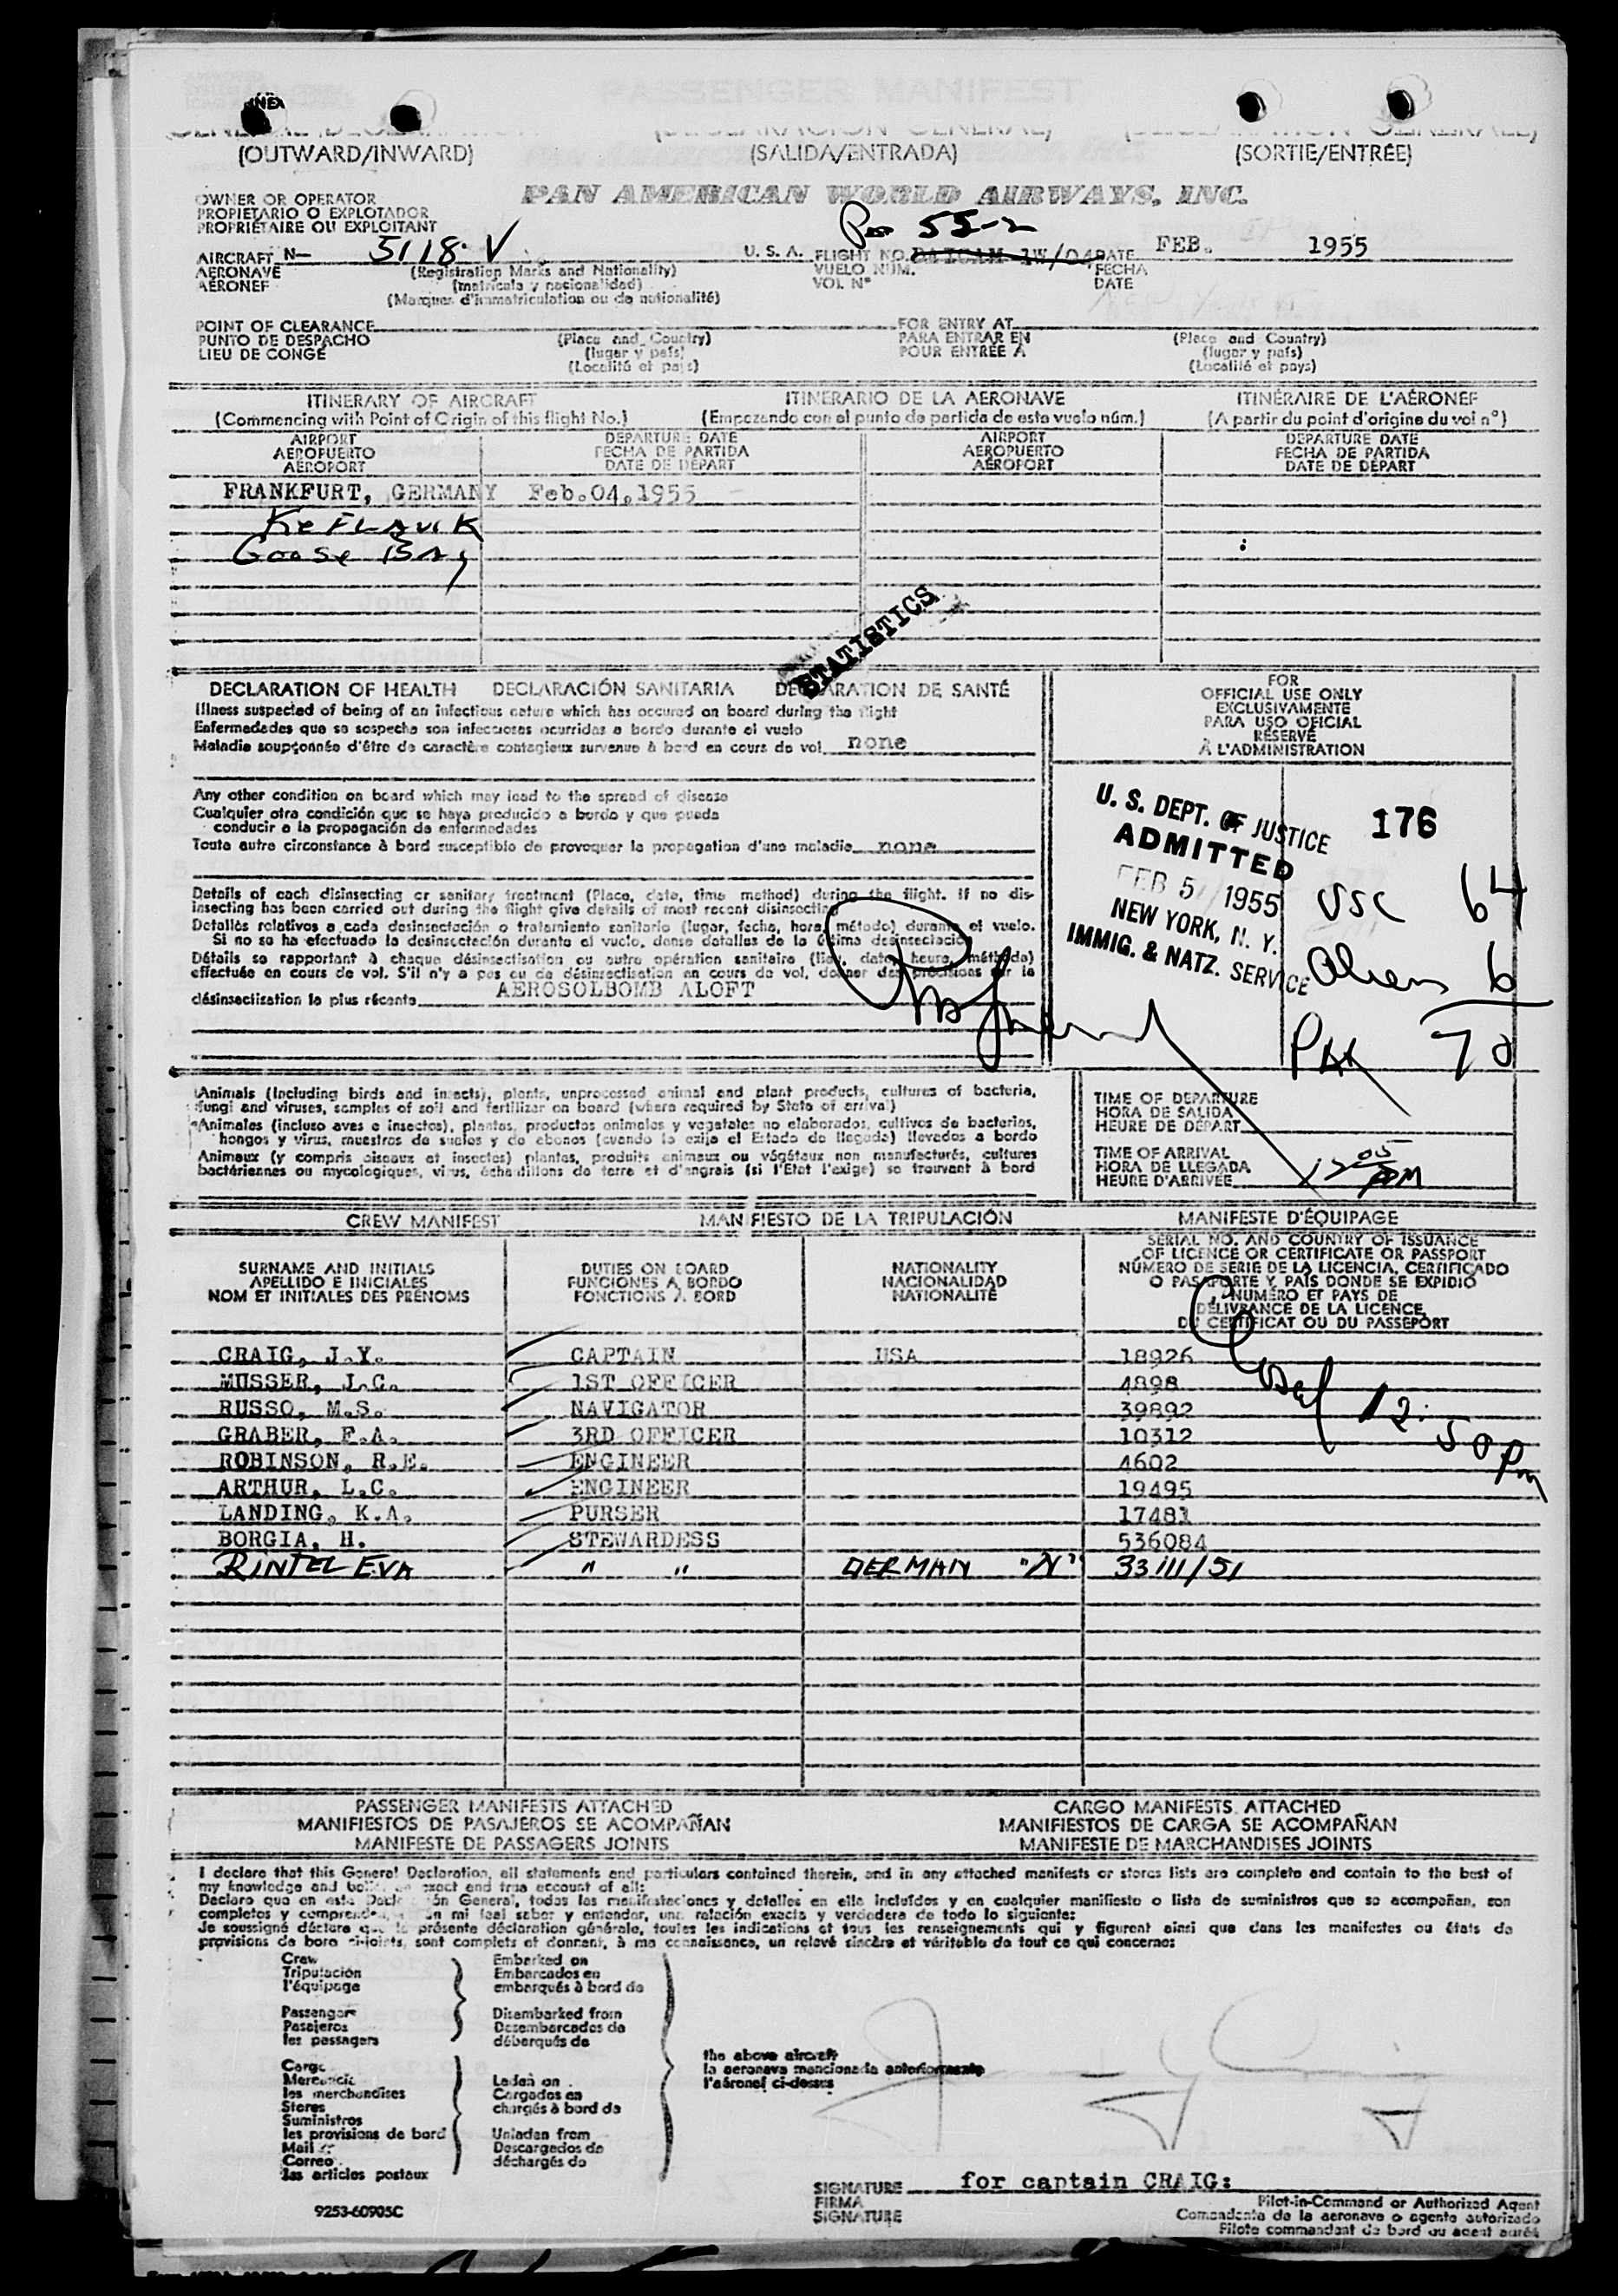 PASSENGER MANIFEST
(OUTWARD/INWARD) (SALIDA/ENTRADA) (SORTIE/ENTRÉE)
OWNER OR OPERATOR
PROPIETARIO O EXPLOTADOR
PROPRIÉTAIRE OU EXPLOITANT
PAN AMERICAN WORLD AIRWAYS, INC.
55-2
AIRCRAFT N- 5118 V U. S. A. FLIGHT NO. DATE FEB. 1955
AERONAVE (Registration Marks and Nationality) VUELO NUM. FECHA
AÉRONEF (matrícula y nacionalidad) VOL N° DATE
(Marques d'immatriculation ou de nationalité)
POINT OF CLEARANCE FOR ENTRY AT
PUNTO DE DESPACHO (Place and Country) PARA ENTRAR EN (Place and Country)
LIEU DE CONGÉ (lugar y país) POUR ENTRÉE À (lugar y país)
(Localité et pays) (Localité et pays)
ITINERARY OF AIRCRAFT ITINERARIO DE LA AERONAVE ITINÉRAIRE DE L'AÉRONEF
(Commencing with Point of Origin of this flight No.) (Empezando con el punto de partida de este vuelo núm.) (A partir du point d'origine du vol n°)
AIRPORT DEPARTURE DATE AIRPORT DEPARTURE DATE
AEROPUERTO FECHA DE PARTIDA AEROPUERTO FECHA DE PARTIDA
AÉROPORT DATE DE DÉPART AÉROPORT DATE DE DÉPART
FRANKFURT, GERMANY Feb.04,1955
KEFLAVIK
Goose BAy
STATISTICS
DECLARATION OF HEALTH DECLARACIÓN SANITARIA DECLARATION DE SANTÉ
Illness suspected of being of an infectious nature which has occured on board during the flight
Enfermedades que se sospecha son infecciosas ocurridas a bordo durante el vuelo
Maladie soupçonnée d'être de caractère contagieux survenue à bord en cours de vol none
FOR
OFFICIAL USE ONLY
EXCLUSIVAMENTE
PARA USO OFICIAL
RÉSERVÉ
À L'ADMINISTRATION
Any other condition on board which may lead to the spread of disease
Cualquier otra condición que se haya producido a bordo y que pueda
conducir a la propagación de enfermedades
Toute autre circonstance à bord susceptible de provoquer la propagation d'une maladie none
U. S. DEPT. OF JUSTICE
ADMITTED
FEB 5 1955
NEW YORK, N. Y.
IMMIG. & NATZ. SERVICE
176
USC 64
Aliens 6
PAX 70
Details of each disinsecting or sanitary treatment (Place, date, time method) during the flight. If no dis-
insecting has been carried out during the flight give details of most recent disinsecting
Detalles relativos a cada desinsectación o tratamiento sanitario (lugar, fecha, hora, método) durante el vuelo.
Si no se ha efectuado la desinsectación durante el vuelo, dense detalles de la última desinsectación
Détails se rapportant à chaque désinsectisation ou autre opération sanitaire (lieu, date, heure, méthode)
effectuée en cours de vol. S'il n'y a pas eu de désinsectisation en cours de vol, donner des précisions sur la
désinsectisation la plus récente AEROSOLBOMB ALOFT
Animals (including birds and insects), plants, unprocessed animal and plant products, cultures of bacteria,
fungi and viruses, samples of soil and fertilizer on board (where required by State of arrival)
Animales (incluso aves e insectos), plantas, productos animales y vegetales no elaborados, cultivos de bacterias,
hongos y virus, muestras de suelos y de abonos (cuando lo exija el Estado de llegada) llevados a bordo
Animaux (y compris oiseaux et insectes) plantes, produits animaux ou végétaux non manufacturés, cultures
bactériennes ou mycologiques, virus, échantillons de terre et d'engrais (si l'Etat l'exige) se trouvant à bord
TIME OF DEPARTURE
HORA DE SALIDA
HEURE DE DÉPART
TIME OF ARRIVAL
HORA DE LLEGADA
HEURE D'ARRIVÉE 1205 PM
CREW MANIFEST MANIFIESTO DE LA TRIPULACIÓN MANIFESTE D'ÉQUIPAGE
SURNAME AND INITIALS
APELLIDO E INICIALES
NOM ET INITIALES DES PRÉNOMS
DUTIES ON BOARD
FUNCIONES A BORDO
FONCTIONS À BORD
NATIONALITY
NACIONALIDAD
NATIONALITÉ
SERIAL NO. AND COUNTRY OF ISSUANCE
OF LICENCE OR CERTIFICATE OR PASSPORT
NÚMERO DE SERIE DE LA LICENCIA, CERTIFICADO
O PASAPORTE Y PAÍS DONDE SE EXPIDIÓ
NUMÉRO ET PAYS DE
DÉLIVRANCE DE LA LICENCE,
DU CERTIFICAT OU DU PASSEPORT
CRAIG, J.Y. CAPTAIN USA 18926
MUSSER, J.C. 1ST OFFICER 4898
RUSSO, M.S. NAVIGATOR 39892
GRABER, F.A. 3RD OFFICER 10312
ROBINSON, R.E. ENGINEER 4602
ARTHUR, L.C. ENGINEER 19495
LANDING, K.A. PURSER 17481
BORGIA, H. STEWARDESS 536084
RINTEL EVA " " GERMAN "N" 33111/51
12:50 Pm
PASSENGER MANIFESTS ATTACHED CARGO MANIFESTS ATTACHED
MANIFIESTOS DE PASAJEROS SE ACOMPAÑAN MANIFIESTOS DE CARGA SE ACOMPAÑAN
MANIFESTE DE PASSAGERS JOINTS MANIFESTE DE MARCHANDISES JOINTS
I declare that this General Declaration, all statements and particulars contained therein, and in any attached manifests or stores lists are complete and contain to the best of
my knowledge and belief an exact and true account of all:
Declaro que en esta Declaración General, todas las manifestaciones y detalles en ella incluídos y en cualquier manifiesto o lista de suministros que se acompañan, son
completos y comprenden, a mi leal saber y entender, una relación exacta y verdadera de todo lo siguiente:
Je soussigné déclare que la présente déclaration générale, toutes les indications et tous les renseignements qui y figurent ainsi que dans les manifestes ou états de
provisions de bord ci-joints, sont complets et donnent, à ma connaissance, un relevé sincère et véritable de tout ce qui concerne:
Crew Embarked on
Tripulación Embarcados en
l'équipage embarqués à bord de
Passengers Disembarked from
Pasajeros Desembarcados de
les passagers débarqués de
the above aircraft
la aeronave mencionada anteriormente
l'aéronef ci-dessus
Cargo
Mercancía Laden on
les merchandises Cargados en
Stores chargés à bord de
Suministros
les provisions de bord Unladen from
Mail Descargados de
Correo déchargés de
les articles postaux
SIGNATURE for captain CRAIG:
FIRMA
SIGNATURE
Pilot-in-Command or Authorized Agent
Comandante de la aeronave o agente autorizado
Pilote commandant de bord ou agent agréé
9253-60905C